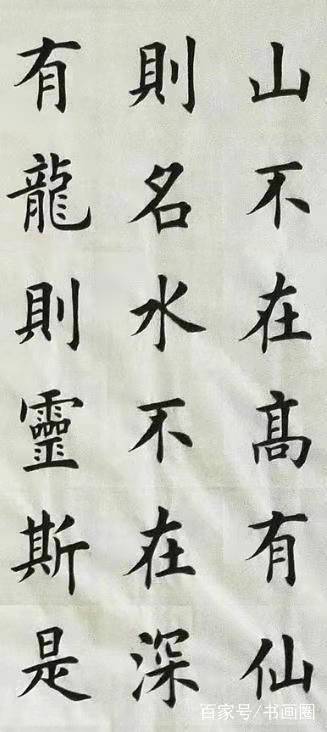 山不在髙有仙
則名水不在深
有龍則靈斯是
百家号/书画圈